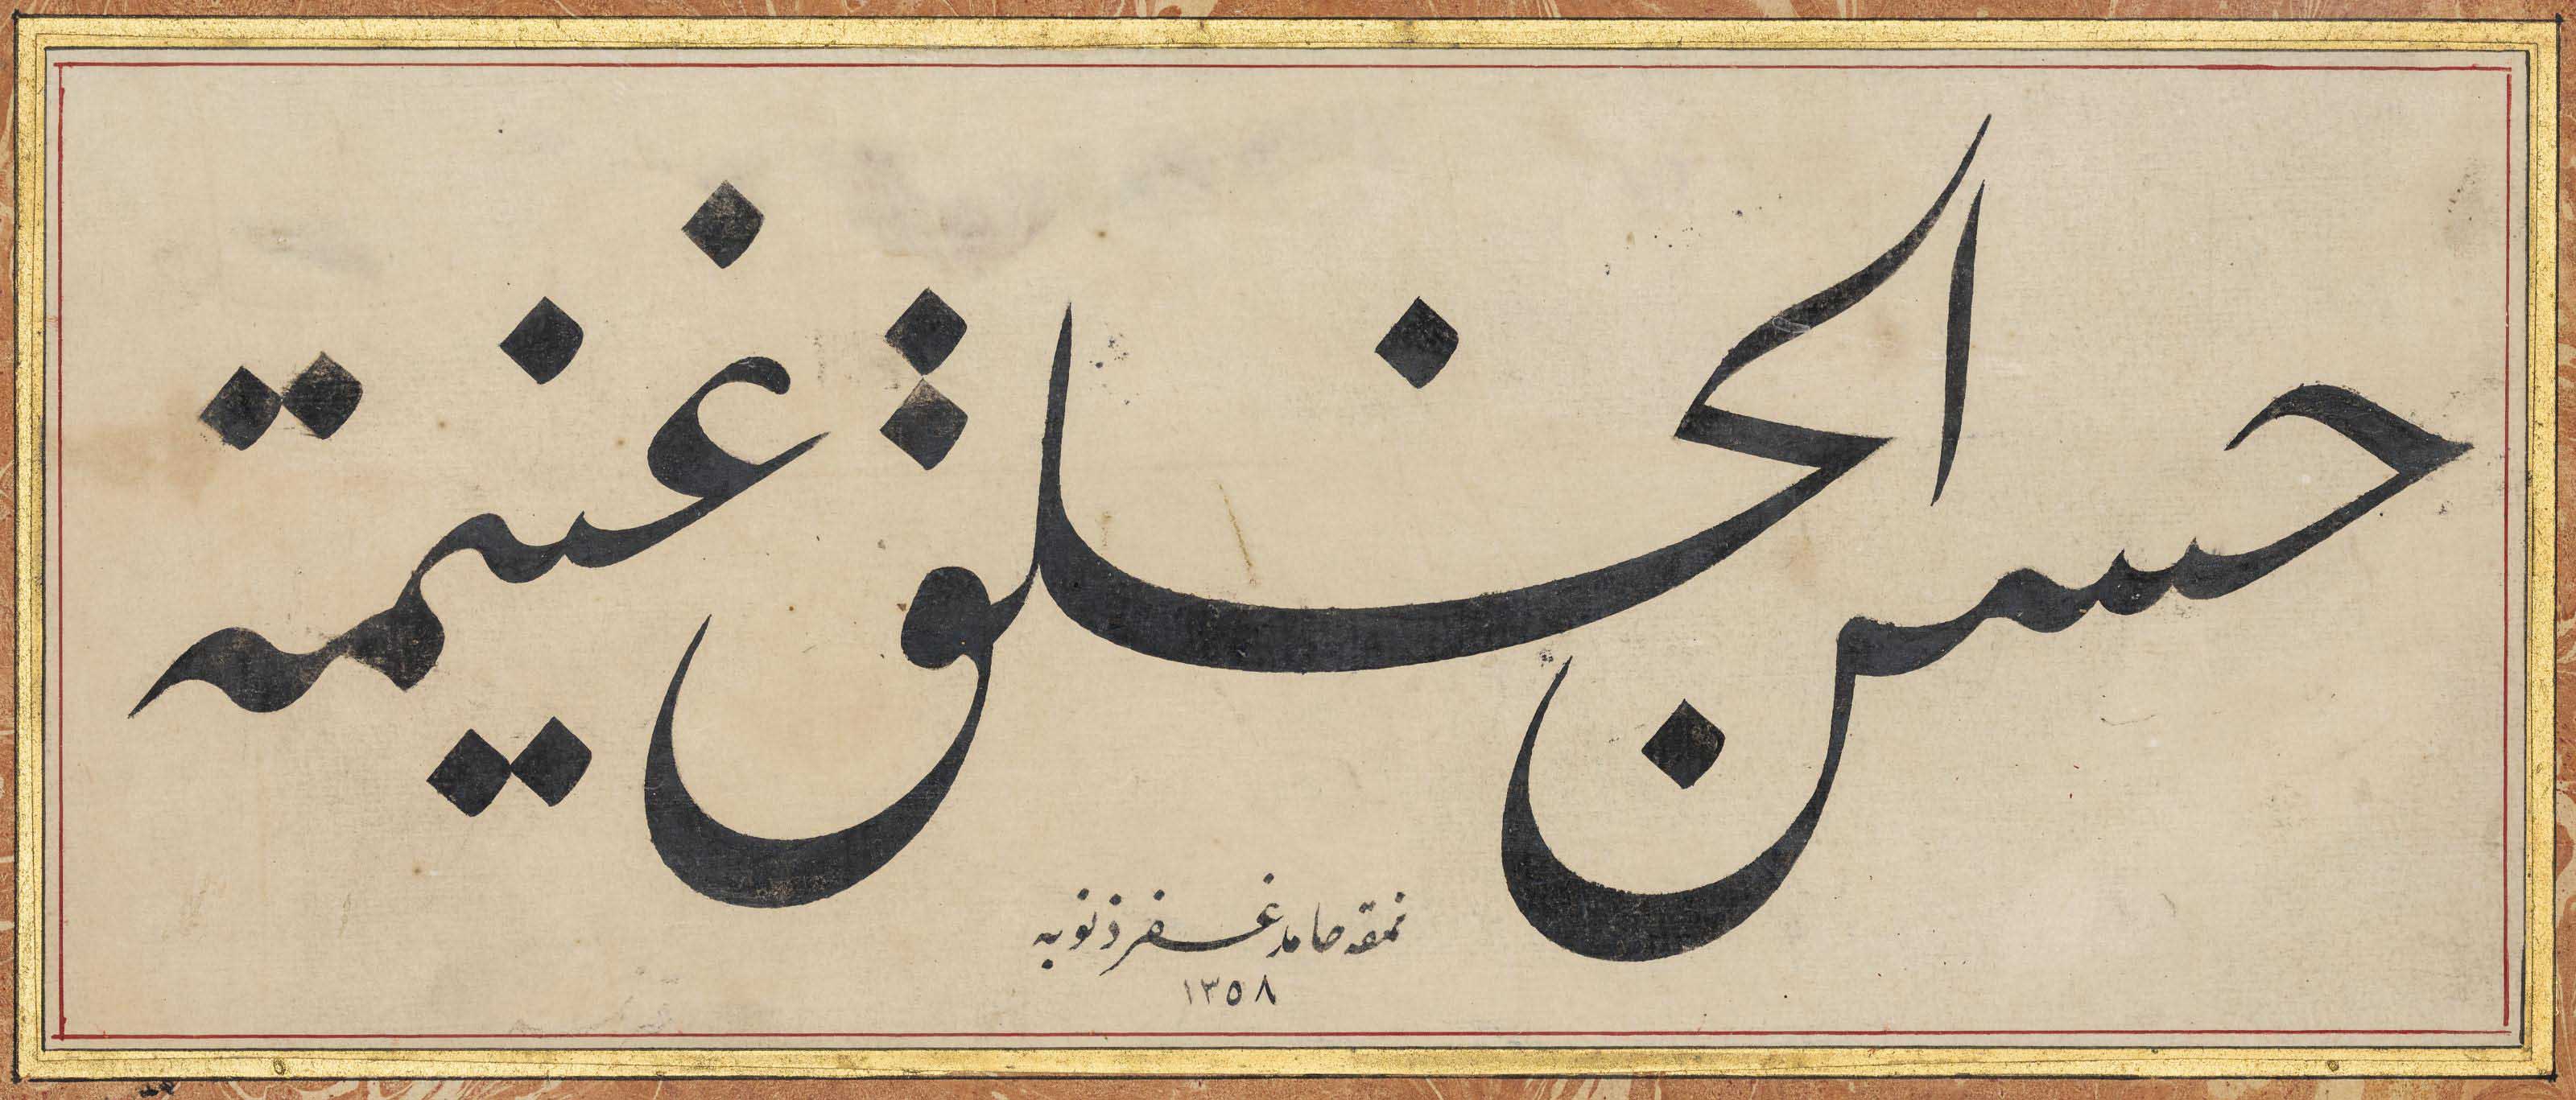 حسن الخلق غنيمة
نمقه حامد غفر ذنوبه
١٣٥٨